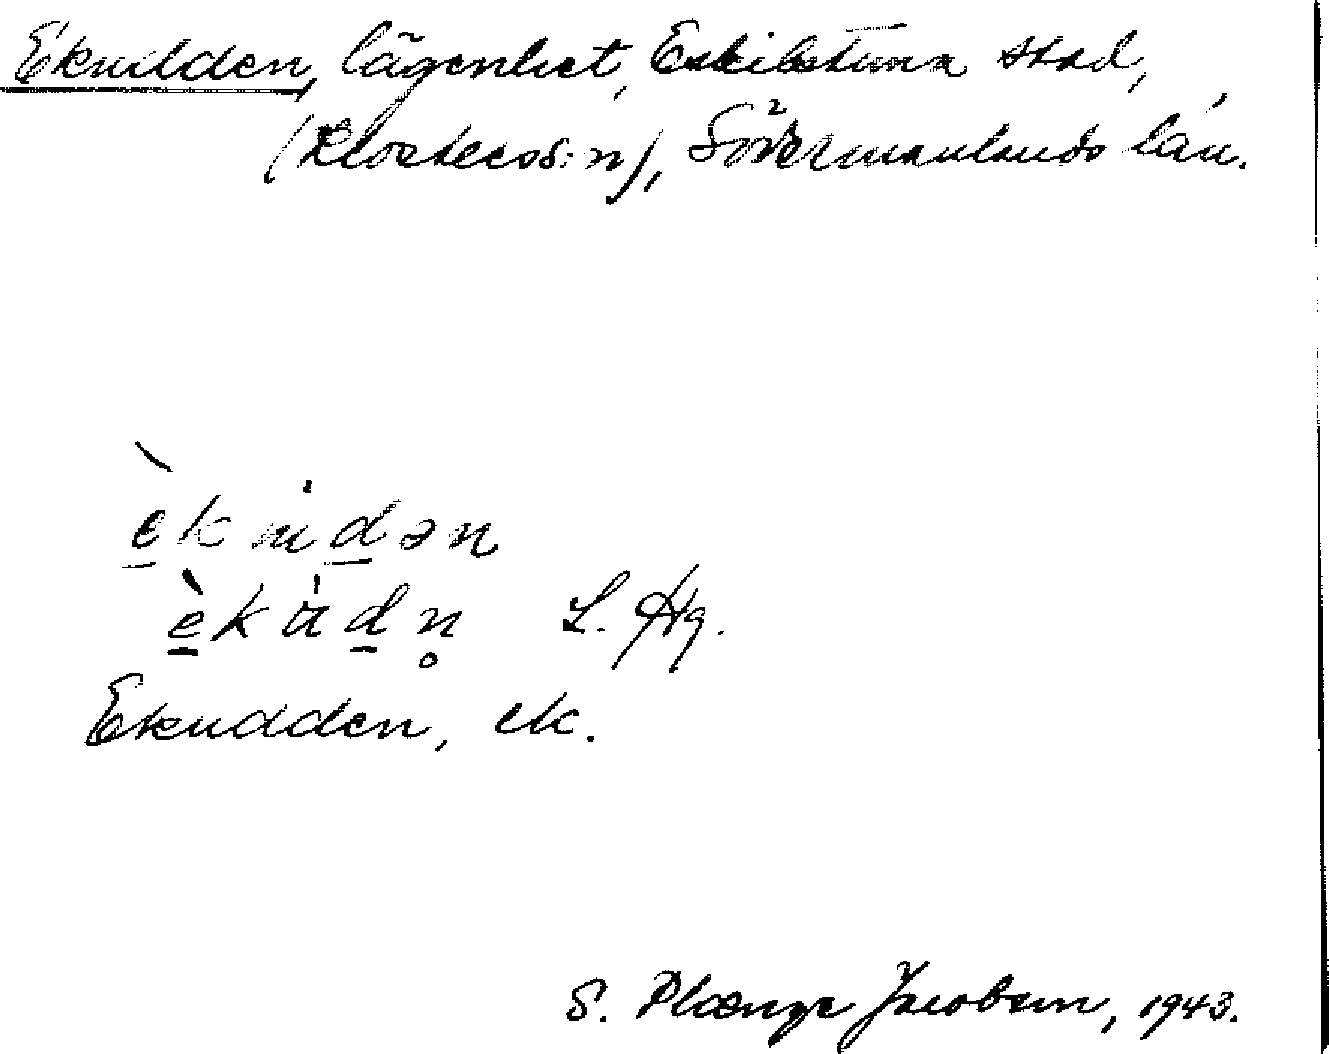 Ekudden, lägenhet, Eskilstuna stad,
(Klosters sn), Södermanlands län.
èkùdən
èkùdn̥ L. Hg.
Ekudden, ek.
S. Plænge Jacobson, 1943.